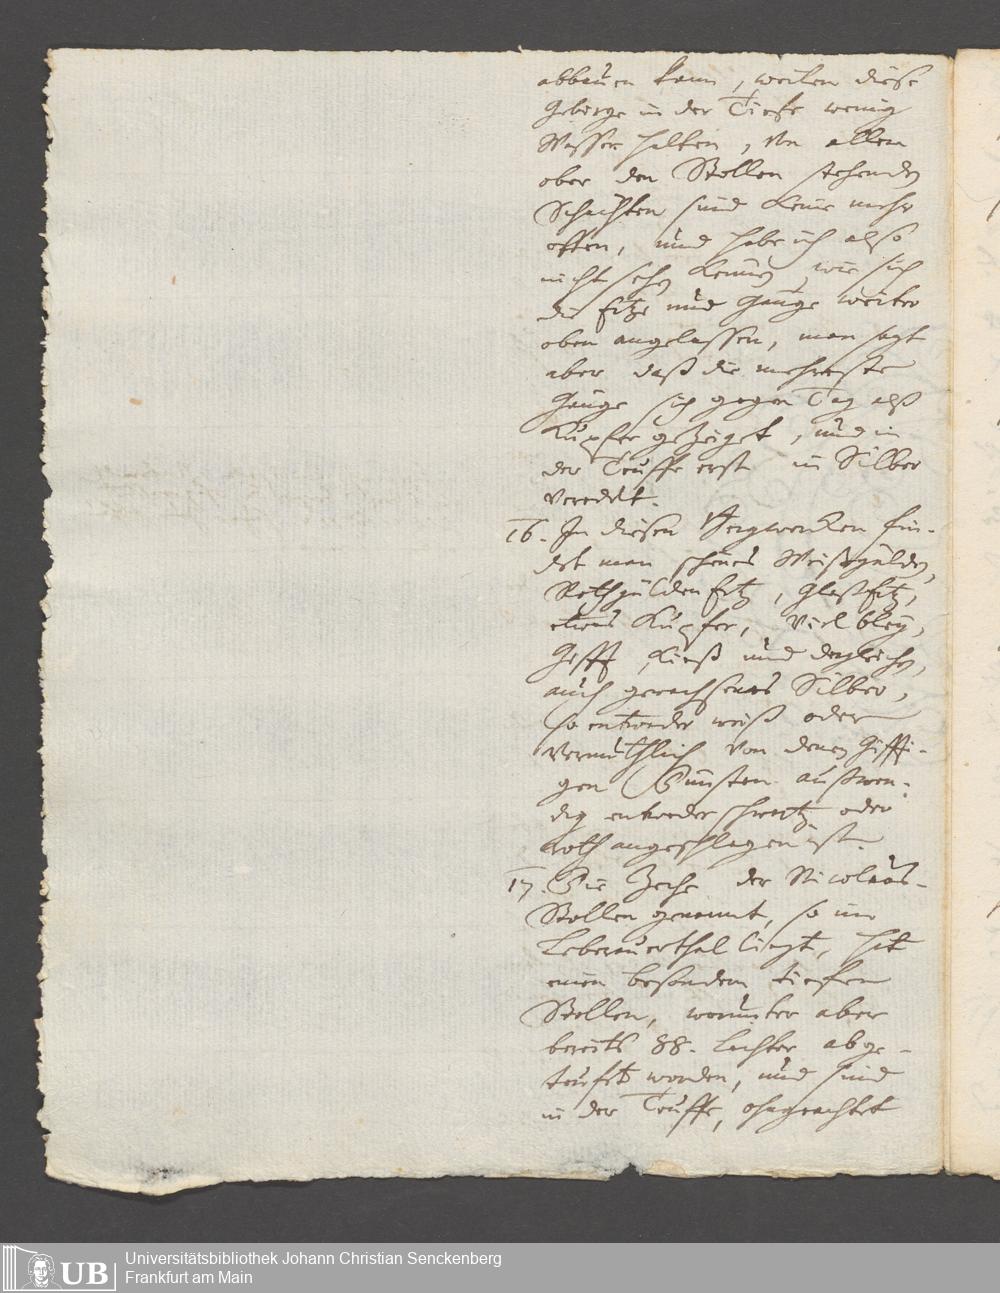 abbauen kann, weilen diese
Gebirge in der Tieffe wenig
Wasser halten, Von allen
ober den Stollen stehenden
Schächten sind keine mehr
offen, und habe ich also
nicht sehen können, wie sich
die Ertze und Gänge weiter
oben angelassen, man sagt
aber daß die mehreste
Gänge sich gegen Tag alß
Kupfer gezeiget, und in
der Teuffe erst in Silber
veredelt.
16. In diesen Bergwercken fin-
det man schönes Weißgülden,
Rothgülden Ertz, Glaß Ertz,
etwas Kupfer, viel bley,
Gifft Kieß und dergleichen,
auch gewachsenes Silber,
so entweder weiß oder
vermuthlich von denen Giffti-
gen Dünsten außwen-
dig entweder schwartz oder
roth angeschlagen ist.
17. Die Zeche der Nicolaus-
Stollen genannt, so im
Leberauerthal liegt, hat
einen besondern tieffen
Stollen, worunter aber
bereits 88. Lachter abge-
teufft worden, und sind
in der Teuffe, ohngeachtet
UB
Universitätsbibliothek Johann Christian Senckenberg
Frankfurt am Main